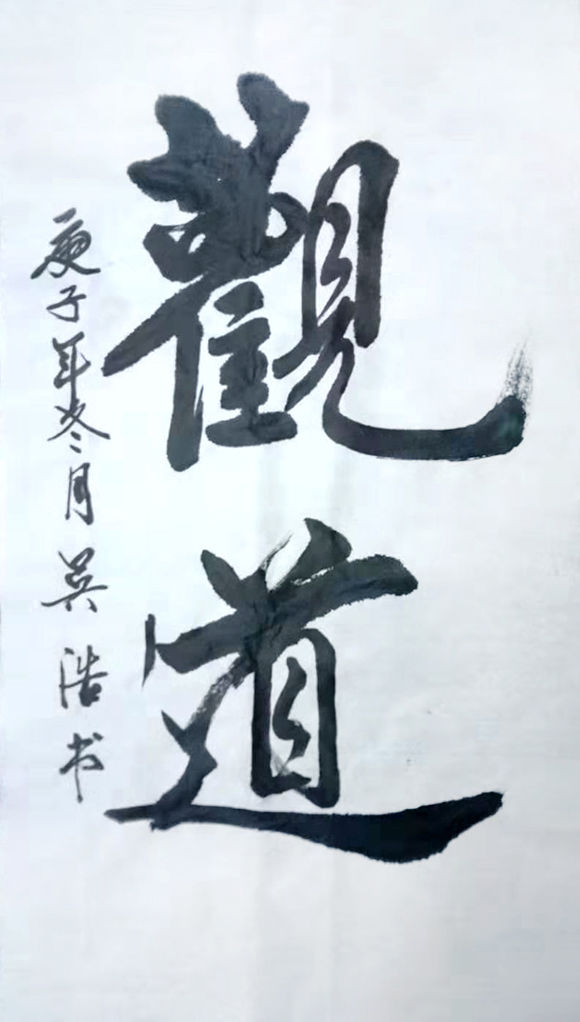 觀道
庚子年冬月吴浩书